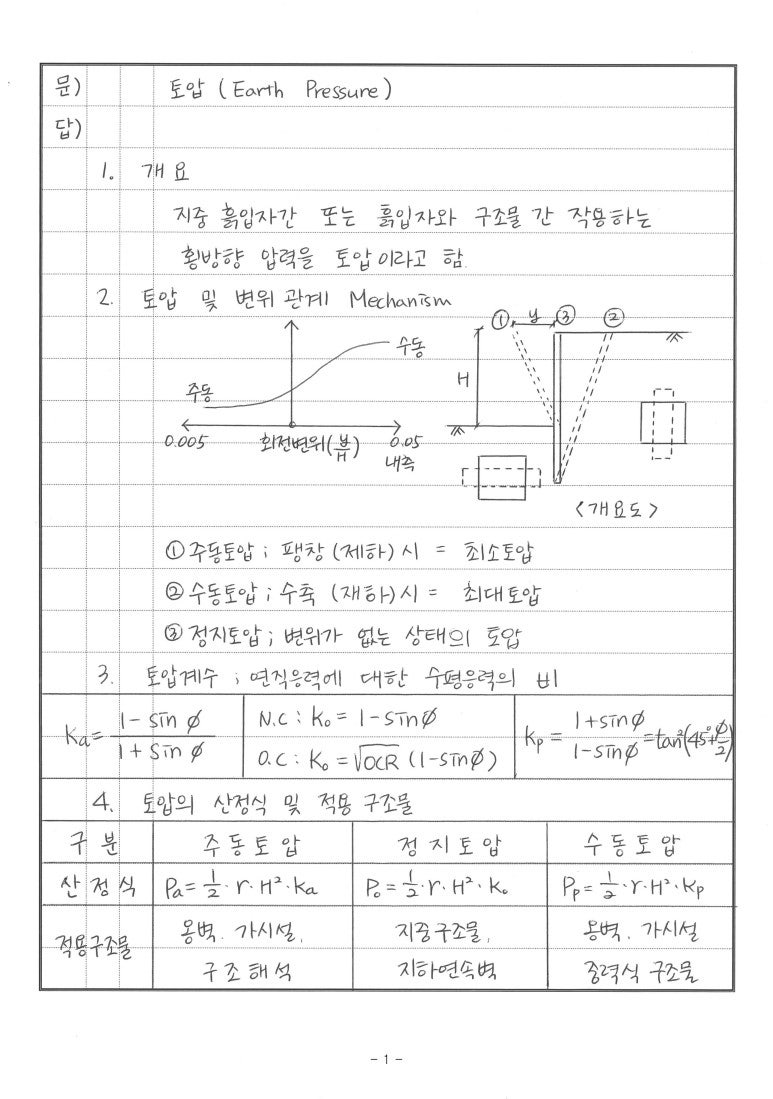 문) 토압 (Earth Pressure)
답)
1. 개요
지중 흙입자간 또는 흙입자와 구조물 간 작용하는
횡방향 압력을 토압이라고 함.
2. 토압 및 변위 관계 Mechanism
① y ③ ②
수동
H
주동
0.005 회전변위(y/H) 0.05
내측
<개요도>
① 주동토압 ; 팽창 (제하) 시 = 최소토압
② 수동토압 ; 수축 (재하) 시 = 최대토압
③ 정지토압 ; 변위가 없는 상태의 토압
3. 토압계수 ; 연직응력에 대한 수평응력의 비
Ka = (1 - sin ø)/(1 + sin ø)
N.C : K₀ = 1 - sinø
O.C : K₀ = √OCR (1 - sinø)
Kp = (1 + sinø)/(1 - sinø) = tan²(45° + ø/2)
4. 토압의 산정식 및 적용 구조물
구분 주동토압 정지토압 수동토압
산정식 Pa = 1/2 · r · H² · Ka P₀ = 1/2 · r · H² · K₀ Pp = 1/2 · r · H² · Kp
적용구조물 옹벽. 가시설, 지중구조물, 옹벽. 가시설
구조해석 지하연속벽 중력식 구조물
- 1 -